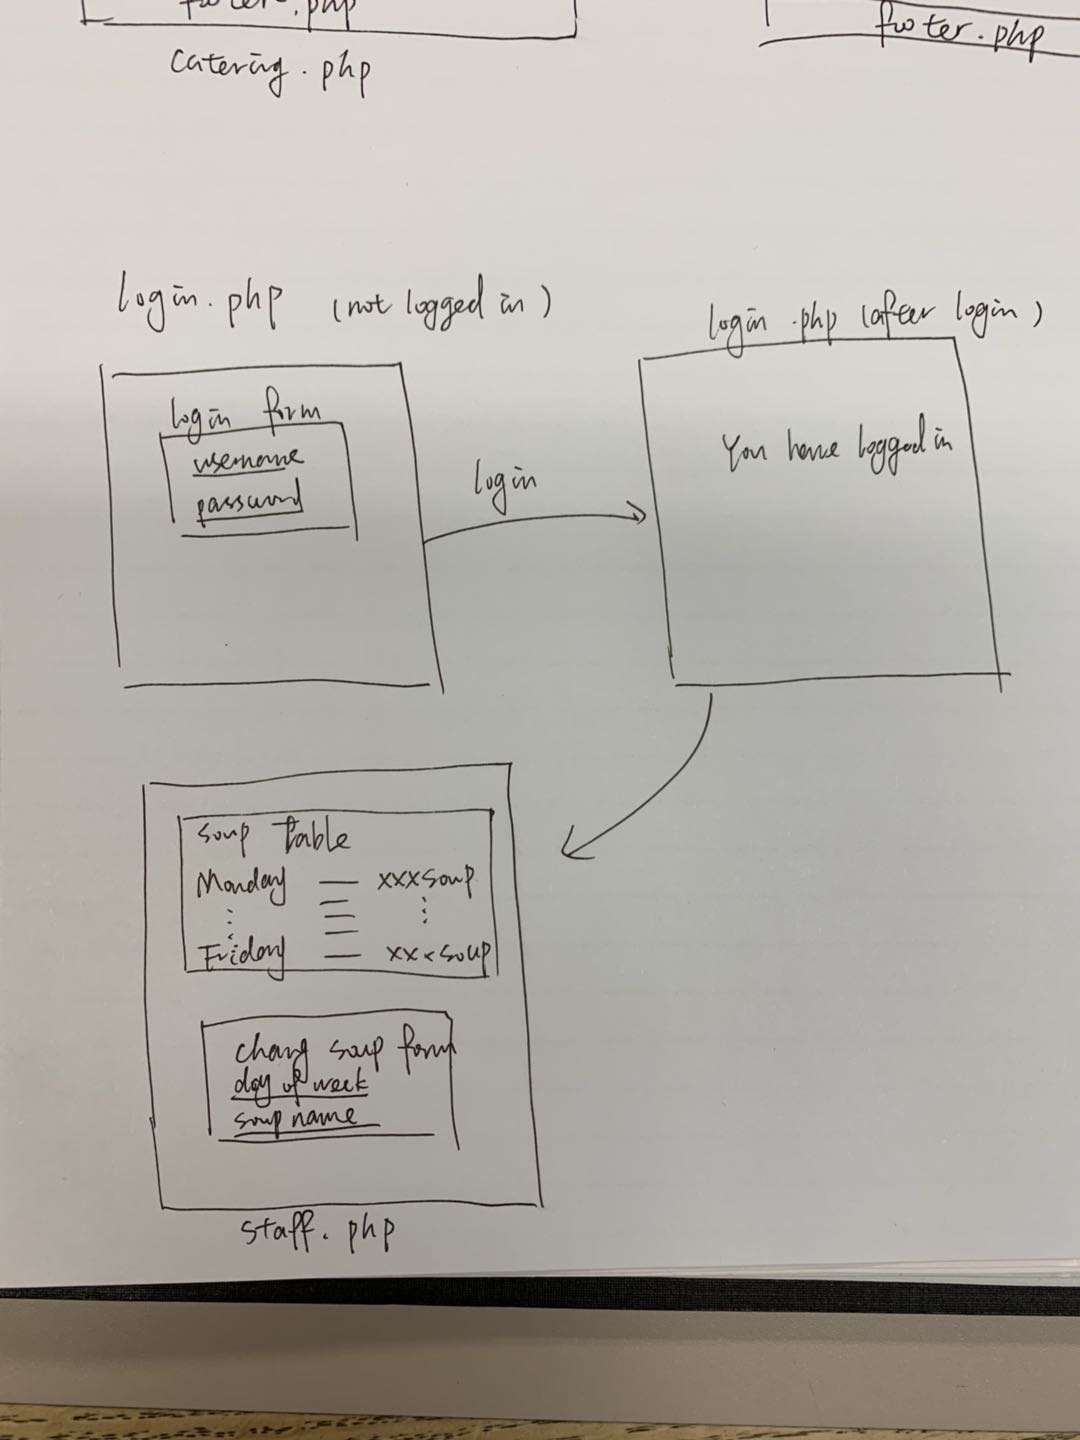 footer.php
footer.php
catering.php
login.php (not logged in)
login.php (after login)
login form
username
password
login
You have logged in
soup Table
Monday — xxxsoup
Friday — xxxsoup
chang soup form
day of week
soup name
staff.php